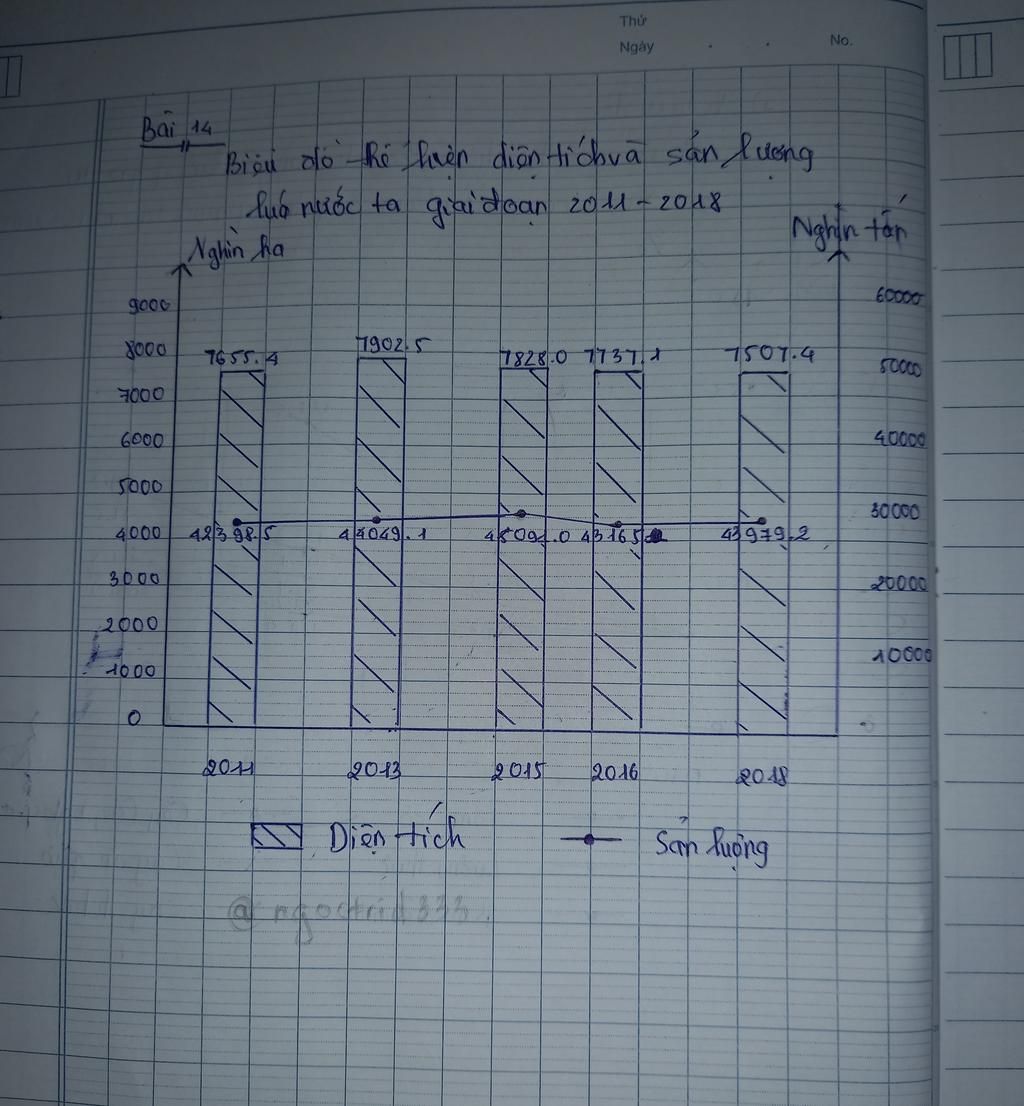 Thứ
Ngày . . No.
Bài 14
Biểu đồ thể hiện diện tích và sản lượng
lúa nước ta giai đoạn 2011 - 2018
Nghìn ha
Nghìn tấn
9000
8000
7000
6000
5000
4000
3000
2000
1000
0
60000
50000
40000
30000
20000
10000
7655.4 7902.5 7828.0 7737.1 7507.4
42398.5 44049.1 45091.0 43165 43979.2
2011 2013 2015 2016 2018
Diện tích Sản lượng